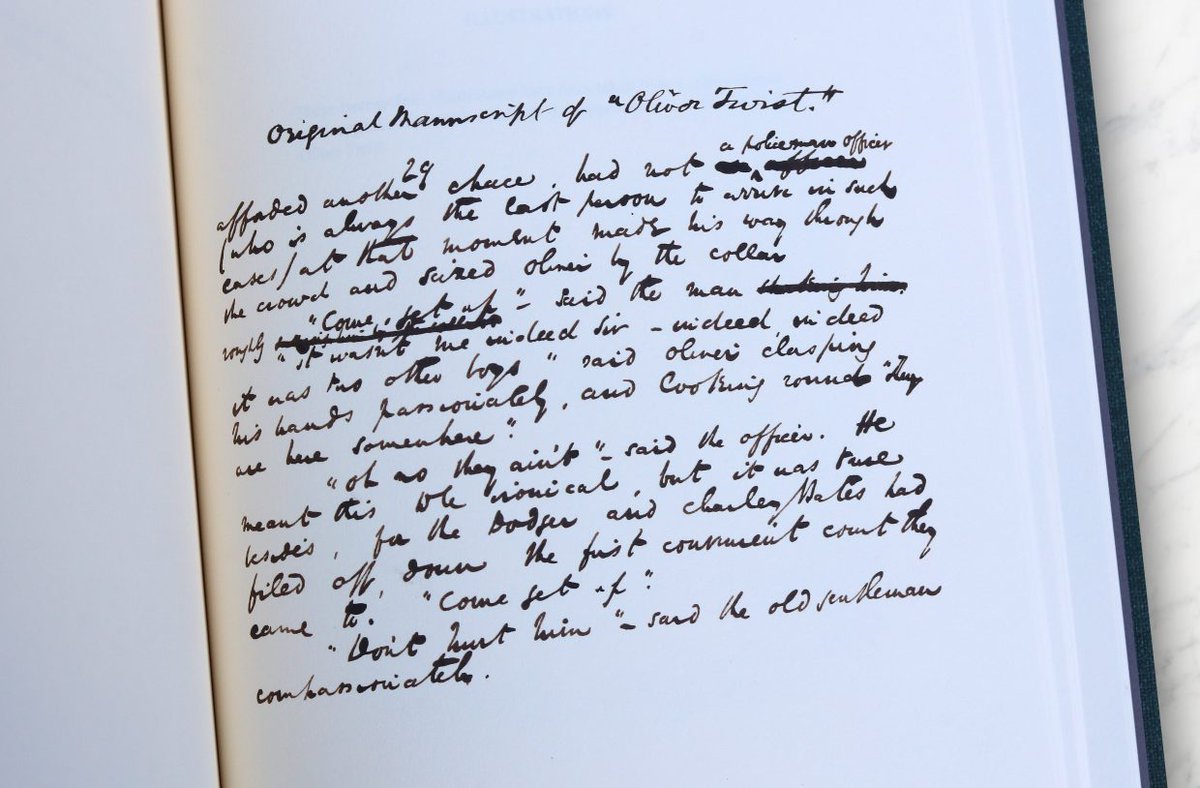 Original Manuscript of "Oliver Twist."
29
a policeman officer
afforded another chace, had not
(who is always the last person to arrive in such
cases) at that moment made his way through
the crowd and seized oliver by the collar
"Come, get up" – said the man shaking him.
roughly
"it wasn't me indeed Sir – indeed, indeed
it was two other boys" said oliver clasping
his hands passionately, and looking round "they
are here somewhere".
"oh no they ain't" – said the officer. He
meant this to be ironical, but it was true
besides, for the Dodger and Charley Bates had
filed off, down the first convenient court they
came to. "Come get up".
"Don't hurt him" – said the old gentleman
compassionately.